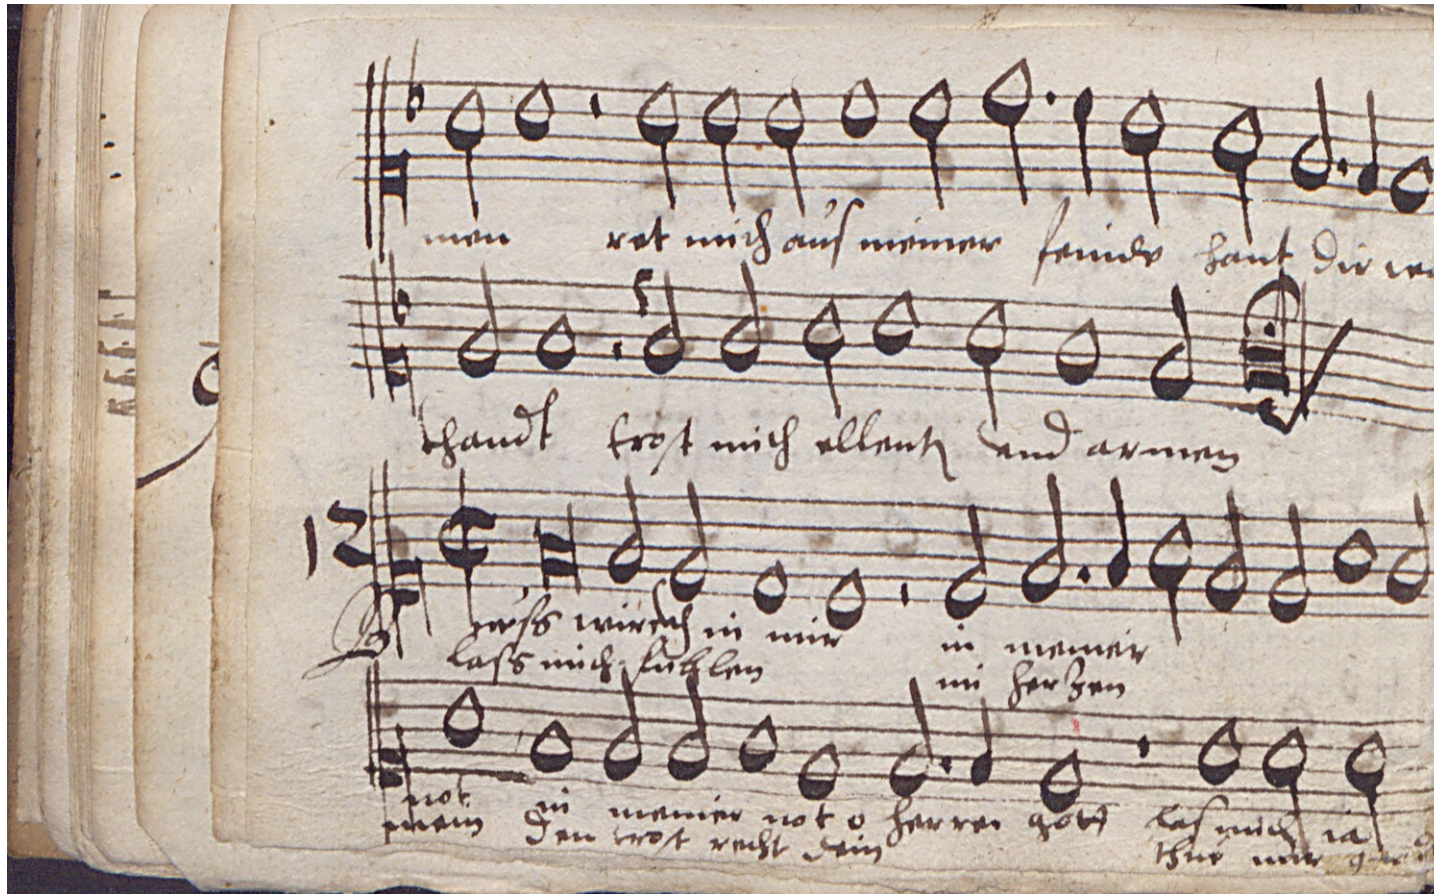 men ret mich aus meiner feinde hant dir
thandt trost mich ellentz und armen
12
in mir in meiner
lass mich fuhlen im hertzen
not in meiner not o herre gott las mich ia
mein den trost recht dein thue mir